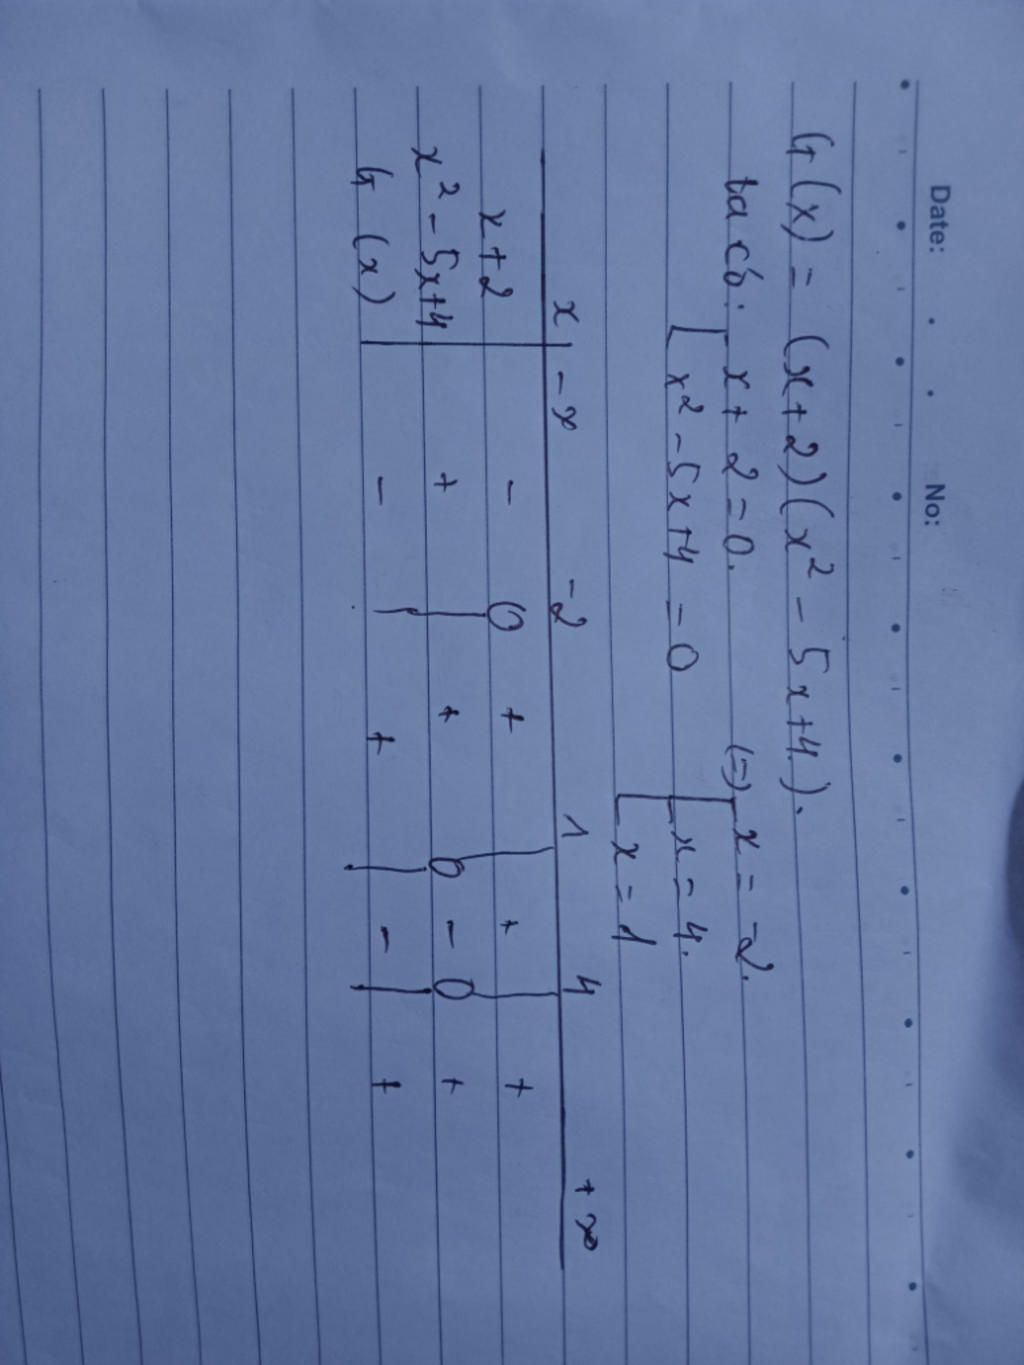 Date: No:
G(x) = (x+2)(x² - 5x+4).
ta có: [ x + 2 = 0. (=) [ x = -2.
x² - 5x+4 = 0 x = 4.
x = 1
x -∞ -2 1 4 +∞
x+2 - 0 + + +
x² - 5x+4 + + 0 - 0 +
G (x) - + - +